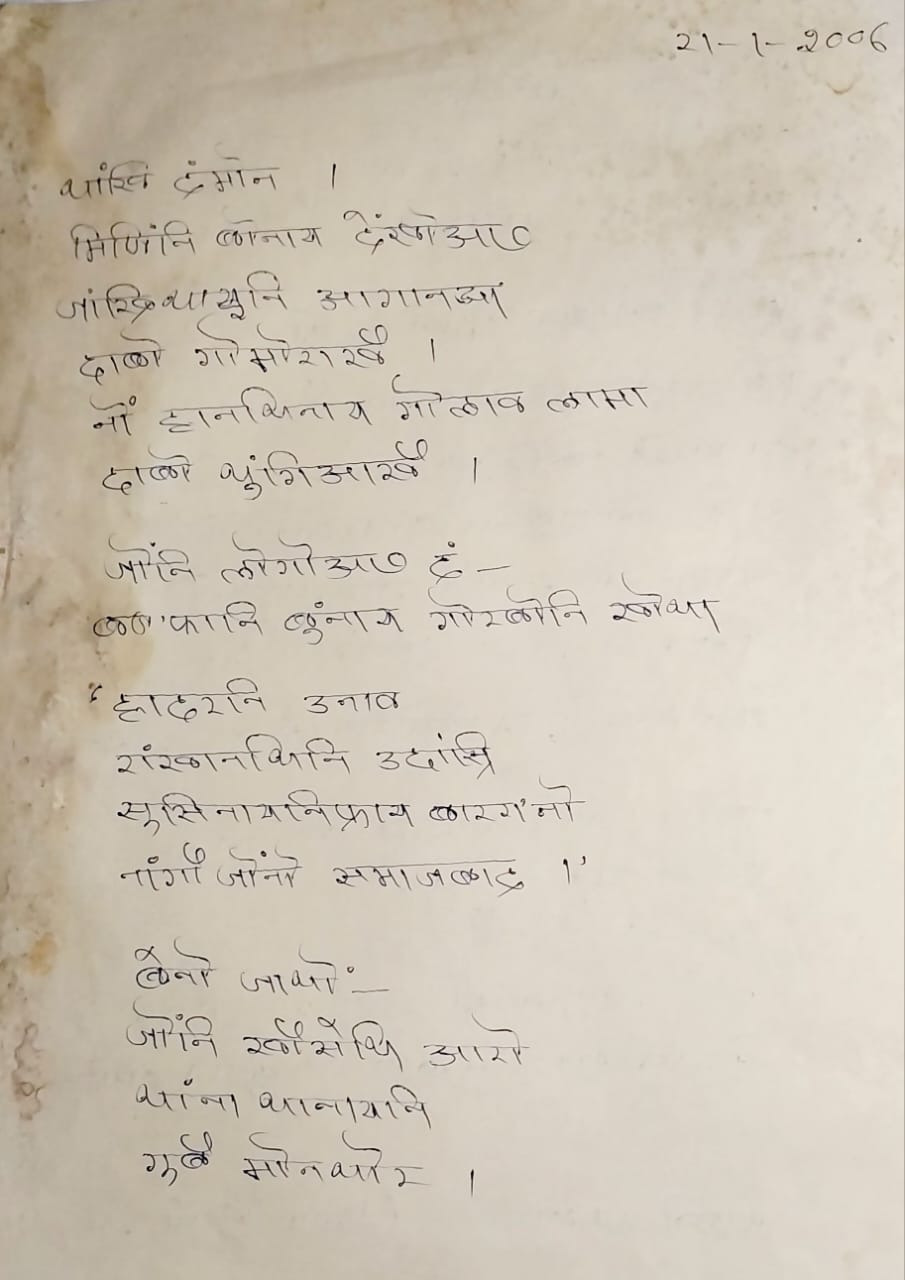 21-1-2006
थांखि दंमोन ।
मिजिंनि बोनाय देंखोआव
जांख्रिथासुनि आगानज्रा
दाबो गोमोराखै ।
नों हानथिनाय गोलाव लामा
दाबो थुंगिआखै ।
जोंनि लोगोआव दं—
बब'फानि बुंनाय गोरबोनि खोथा
'हादरनि उनाव
रांखानथिनि उदांस्रि
सुसिनायनिफ्राय बारग'नो
नांगौ जोंनो समाजबाद ।'
बेनो जाथों:—
जोंनि खौसेथि आरो
थांना थानायनि
गुबै मोनथोर ।